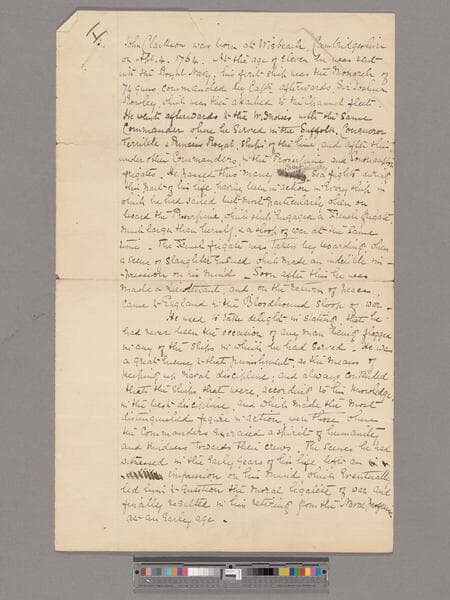 1/.
John Clarkson was born at Wisbeach, Cambridgeshire
on Sept. 4. 1764. At the age of eleven he was sent
into the Royal Navy; his first ship was the Monarch of
74 guns commanded by Captn afterwards Sir Joshua
Rowley, which was then attached to the Channel fleet.
He went afterwards to the W. Indies with the same
Commander where he served in the Suffolk, Conqueror
Terrible & Princess Royal, ships of the line, and after this
under other Commanders, in the Proserpine and Southampton
frigates. He passed thro' many sea fights during
this part of his life, having been in action in every ship in
which he had sailed but most particularly when on
board the Proserpine, which ship engaged a French frigate
much larger than herself, & a sloop of war at the same
time. The French frigate was taken by boarding when
a scene of slaughter ensued which made an indelible im
-pression on his mind. Soon after this he was
made a Lieutenant, and on the return of peace
came to England in the Bloodhound sloop of war
He used to take delight in stating that he
had never been the occasion of any man being flogged
in any of the ships in which he had served. He was
a great enemy to that punishment, as the means of
keeping up naval discipline, and always contended
that the ships that were, according to his knowledge,
in the best discipline, and which made the most
distinguished figure in action were those where
the Commanders exercised a spirit of humanity
and kindness towards their crews. The scenes he had
witnessed in the early years of his life, left an
impression on his mind which eventually
led him to question the moral legality of war and
finally resulted in his retiring from the Naval
at an early age.